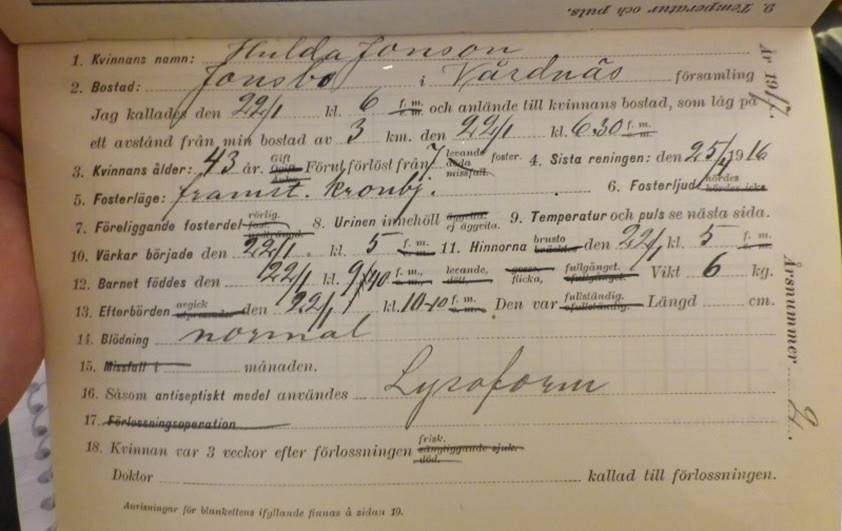 9. Temperatur och puls.
År 1917.
1. Kvinnans namn: Hulda Jonson
2. Bostad: Jonsbo i Vårdnäs församling
Jag kallades den 22/1 kl. 6 f. m. och anlände till kvinnans bostad, som låg på
ett avstånd från min bostad av 3 km. den 22/1 kl. 6.30 f. m.
3. Kvinnans ålder: 43 år. Gift Förut förlöst från 7 levande döda missfall. foster. 4. Sista reningen: den 25/ 1916
5. Fosterläge: framst. kronbj. 6. Fosterljud hördes hördes icke
7. Föreliggande fosterdel rörlig. fast. 8. Urinen innehöll äggvita. ej äggvita. 9. Temperatur och puls se nästa sida.
10. Värkar började den 22/1. kl. 5 f. m. 11. Hinnorna brusto den 22/1 kl. 5 f. m.
12. Barnet föddes den 22/1 kl. 9/40 f. m., levande, dött, gosse, flicka, fullgånget. Vikt 6 kg.
13. Efterbörden avgick den 22/1 kl. 10-10 f. m. Den var fullständig. ofullständig. Längd cm.
14. Blödning normal
15. Missfall i månaden.
16. Såsom antiseptiskt medel användes Lysoform
17. Förlossningsoperation
18. Kvinnan var 3 veckor efter förlossningen frisk. sängliggande sjuk. död.
Doktor kallad till förlossningen.
Anvisningar för blankettens ifyllande finnas å sidan 19.
Årsnummer 2.